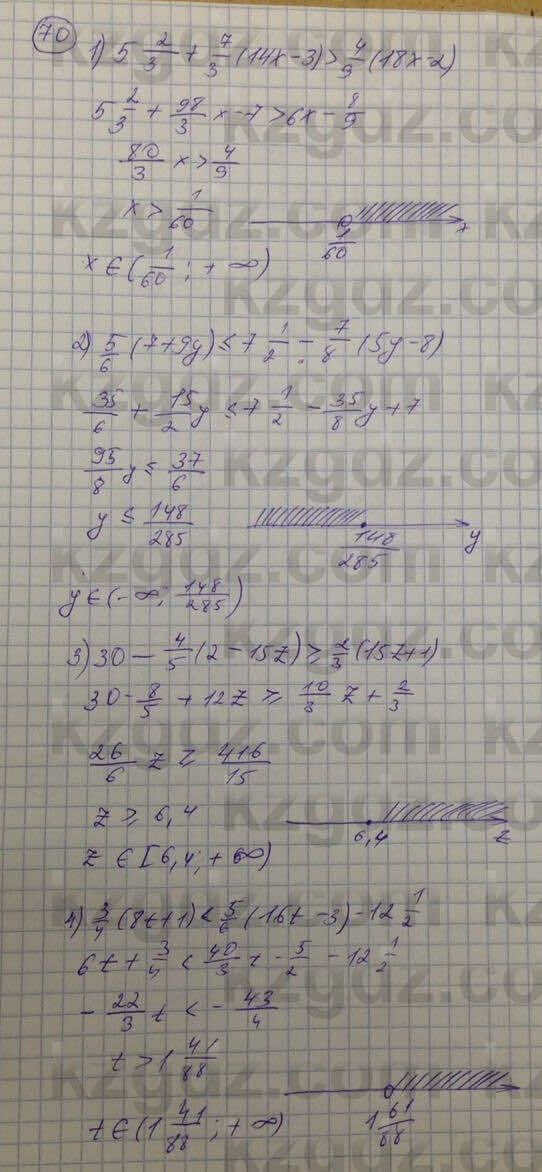 70
1) 5 2/3 + 7/3 (14x-3) > 4/9 (18x-2)
5 2/3 + 98/3 x - 7 > 6x - 8/9
80/3 x > 4/9
x > 1/60
1/60 x
x ∈ (1/60 ; + ∞)
2) 5/6 (7+9y) ≤ 7 1/2 - 7/8 (5y-8)
35/6 + 15/2 y ≤ 7 1/2 - 35/8 y + 7
95/8 y ≤ 37/6
y ≤ 148/285
148/285 y
y ∈ (-∞; 148/285)
3) 30 - 4/5 (2-15z) ≥ 2/3 (15z+1)
30 - 8/5 + 12z ≥ 10/3 z + 2/3
26/6 z ≥ 416/15
z ≥ 6,4
6,4 z
z ∈ [6,4; +∞)
4) 3/4 (8t+1) < 5/6 (16t-3) - 12 1/2
6t + 3/4 < 40/3 t - 5/2 - 12 1/2
- 22/3 t < - 43/4
t > 1 41/88
t ∈ (1 41/88 ; + ∞)
1 61/88
kzgdz.com